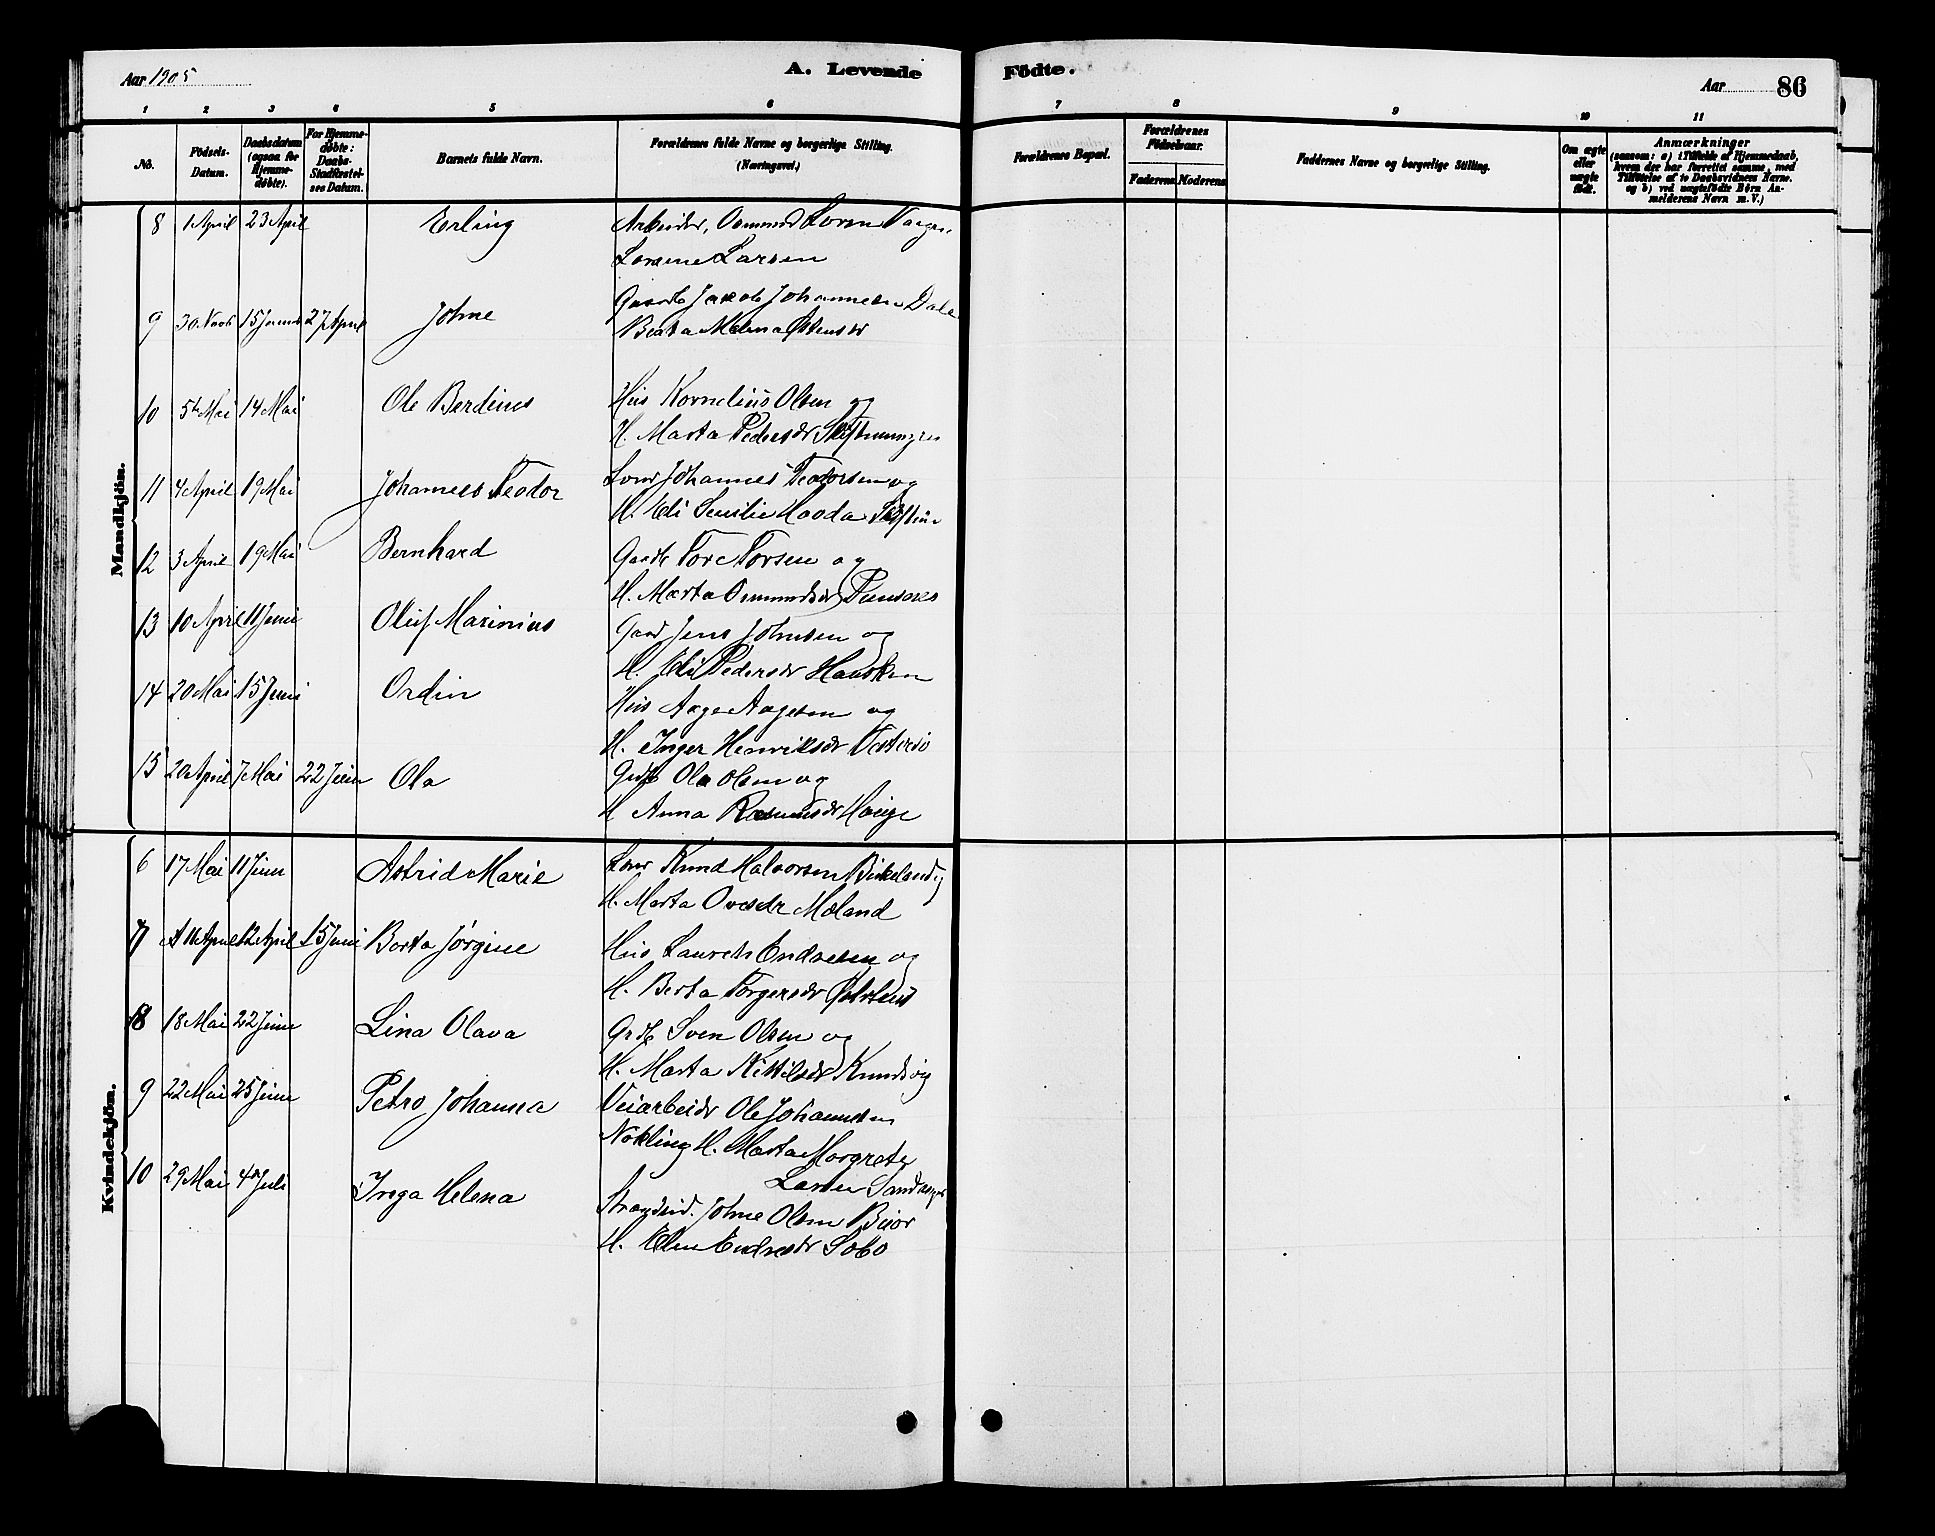 Aar 1905
A. Levende Födte.
Aar 86
1 2 3 4 5 6 7 8 9 10 11
No.
Födsels-Datum.
Daabsdatum (ogsaa for Hjemmedöbte).
For Hjemmedöbte: Daabs-Stadfæstelses Datum.
Barnets fulde Navn.
Forældrenes fulde Navne og borgerlige Stilling. (Næringsvei.)
Forældrenes Bopæl.
Forældrenes Födselsaar.
Faderens Moderens
Faddernes Navne og borgerlige Stilling.
Om ægte eller uægte födt.
Anmærkninger
(saasom: a) i Tilfælde af Hjemmedaab, hvem der har forrettet samme, med Tilföielse af to Daabsvidners Navne. og b) ved uægtefödte Börn Anmelderens Navn m. V.)
Mandkjön.
8 1 April 23 April Erling Arbeider, Osmund
Larsen
9 30. Novb 15 27 April Johne Jakob Johannesen Dale
Beata
10 5te Mai 14 Mai Ole Berdines Hus Kornelius Olsen og
H. Marta Pedersdr
11 4 April 19 Mai Johannes Teodor Johannes Teodorsen og
H. Eli
12 3 April 19 Mai Bernhard Gaardb Tore Torsen og
H. Marta Osmundsdr
13 10 April 11 Juni Oluf Marinius Gaard Jens Johnsen og
H. Eli Pedersdr Hausken
14 20 Mai 15 Juni Ordin Hus Aage Aagesen og
H. Inger Henriksdr
15 20 April 7 Mai 22 Juni Ola Grdb Ola Olsen og
H Anna Rasmusdr Hauge
Kvindekjön.
6 17 Mai 11 Juni Astrid Marie Knud Halvorsen Birkeland og
H. Marta Ovesdr Mæland
7 11 April 12 April 15 Juni Berta Jørgine Hus Laurets Endresen og
H. Berta Torgersdr
8 18 Mai 22 Juni Lina Olava Grdb Sven Olsen og
H. Marta Kittilsdr Knudsvig
9 22 Mai 25 Juni Petro Johanna Veiarbeidr Ole Johannesen
Nøkling H. Marta Margrete
Larsen
10 29 Mai 4de Juli Inga Helena Strandsid. Johne Olsen
H. Elen Endresdr